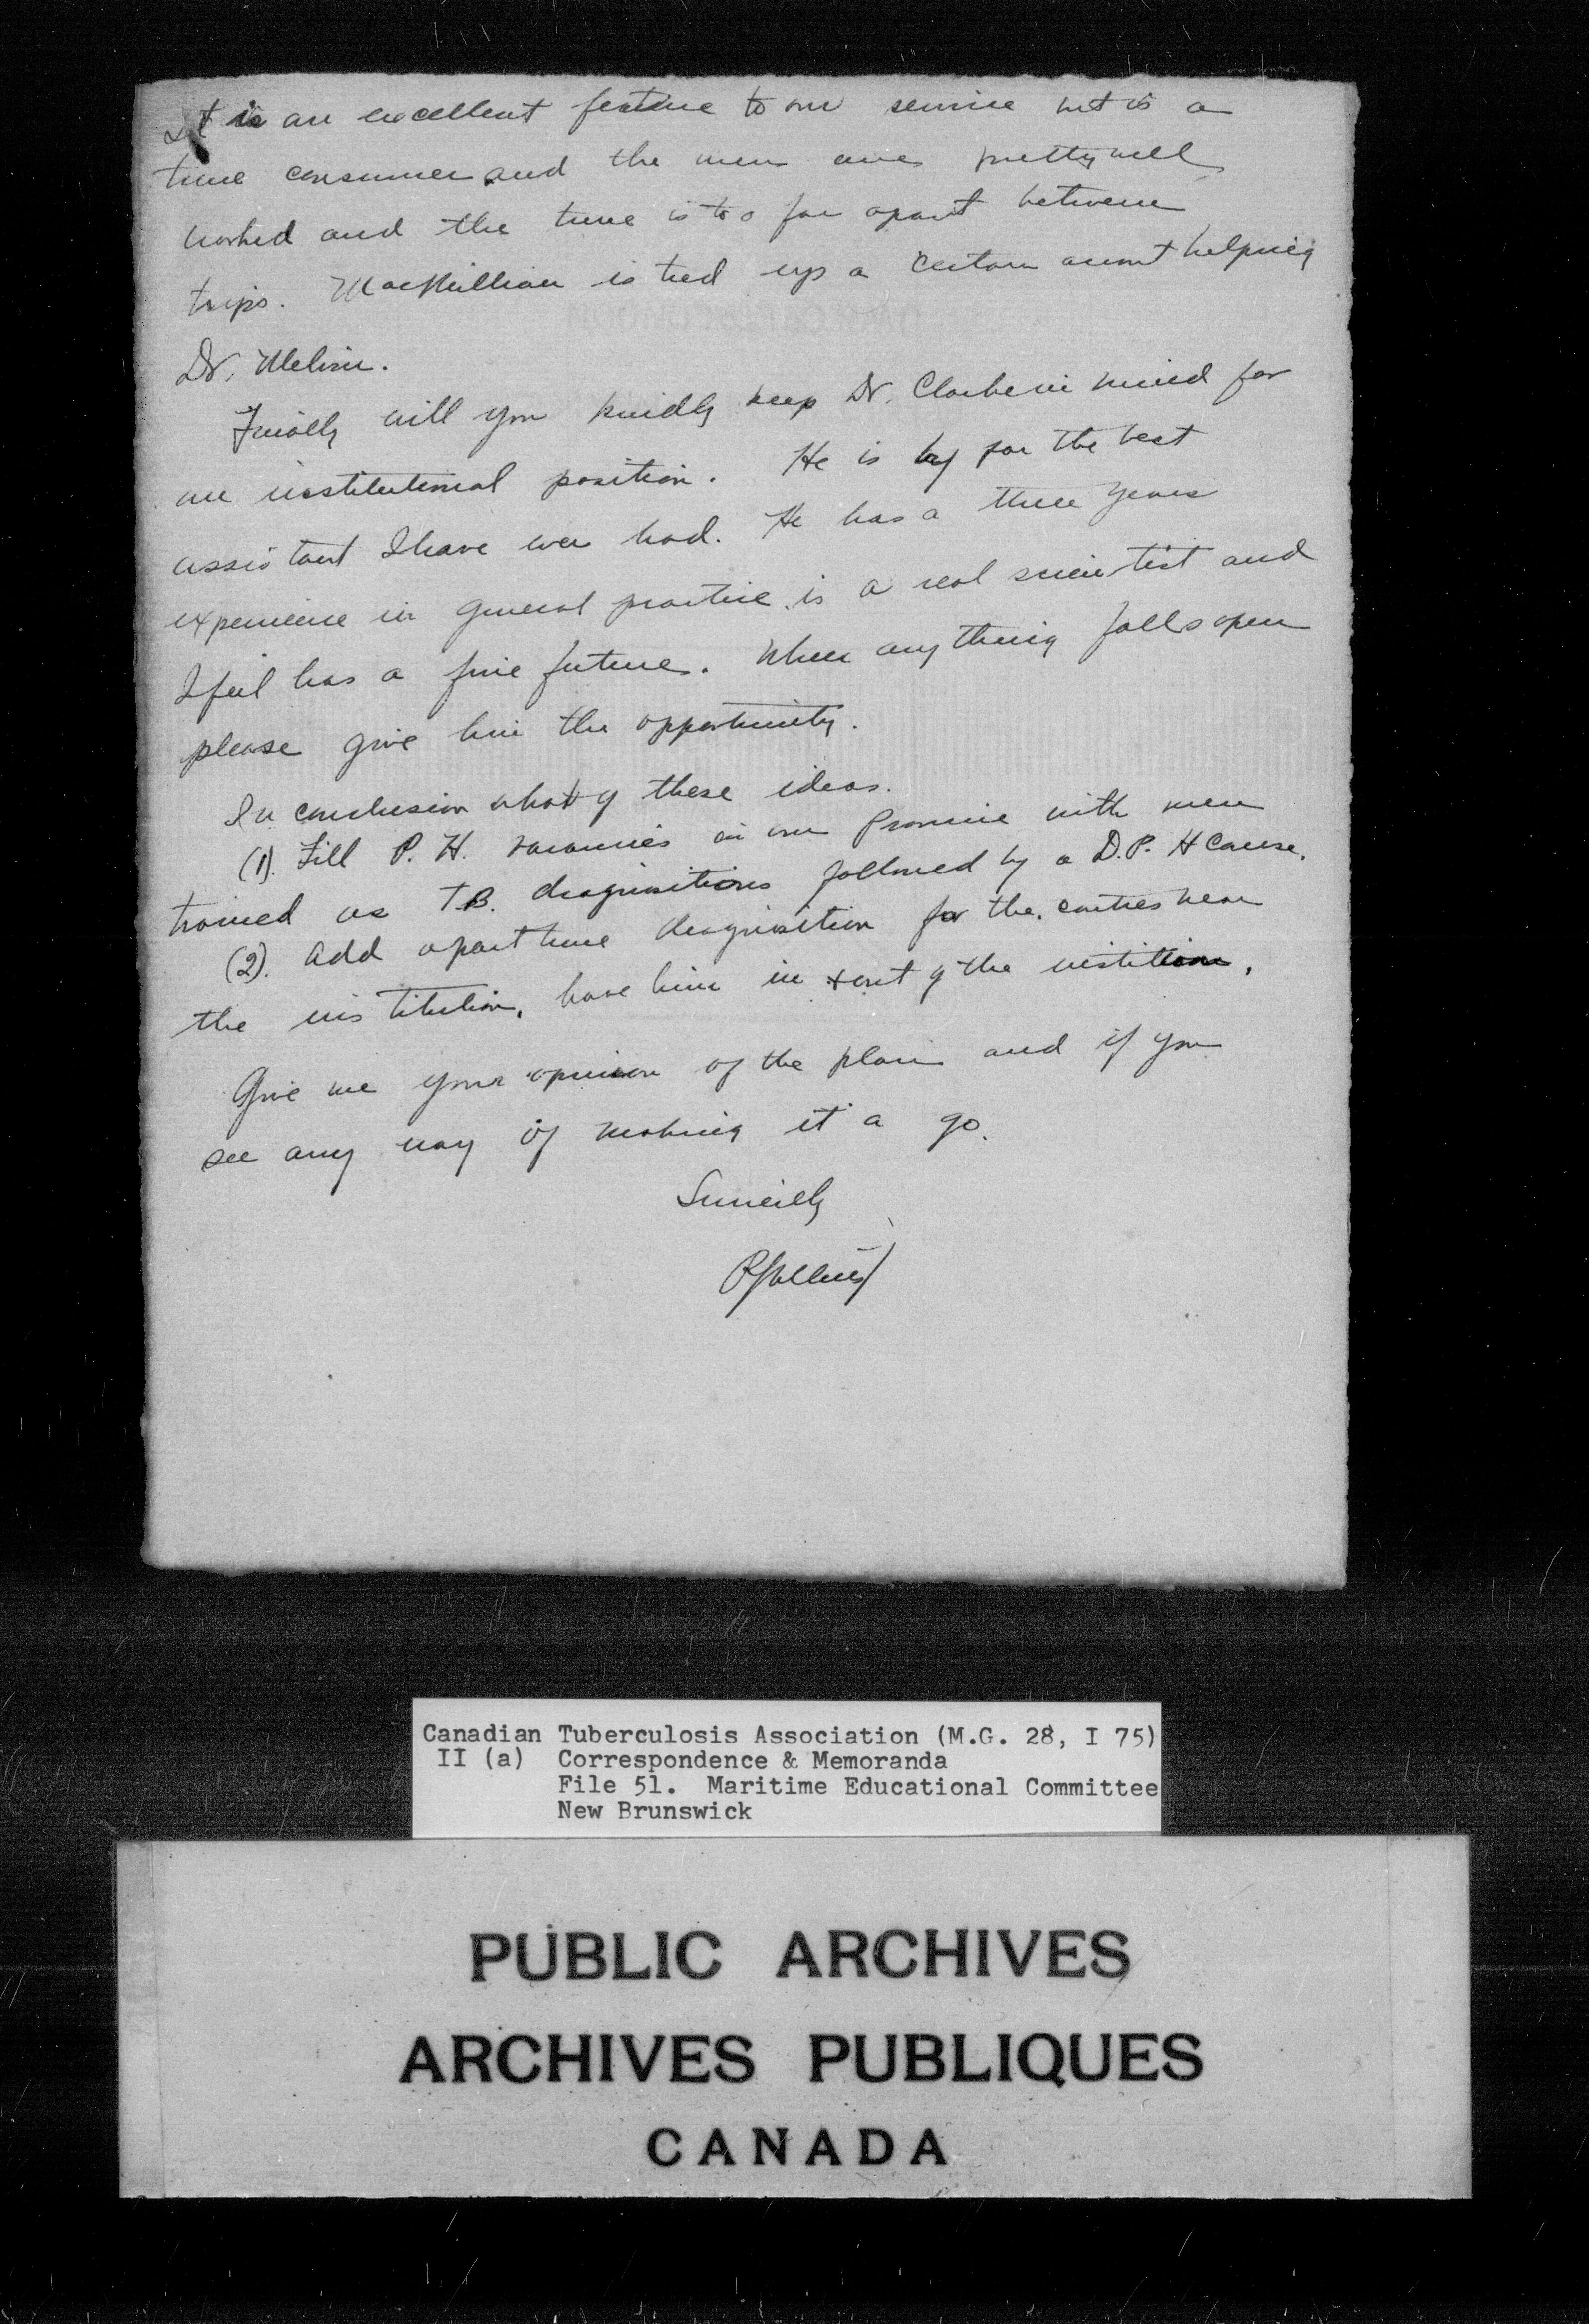 It is an excellent feature to our service but is a
time consumer and the men are pretty well
worked and the time is too far apart between
trips. MacMillian is tied up a certain amont helping
Dr. Melvin.
Finally will you kindly keep Dr. Clarke in mind for
an institutional position. He is by far the best
assistant I have ever had. He has a three years
experience in general practice, is a real scientist and
I feel has a fine future. When anything falls open
please give him the opportunity.
In conclusion what of these ideas.
(1). Fill P. H. vacancies in our Province with men
trained as T.B. diagnositions followed by a D.P.H Course.
(2). Add a part time diagnosition for the counties near
the institution, have him in & out of the institution.
Give me your opinion of the plan and if you
see any way of making it a go.
Sincerely
Canadian Tuberculosis Association (M.G. 28, I 75)
II (a) Correspondence & Memoranda
File 51. Maritime Educational Committee
New Brunswick
PUBLIC ARCHIVES
ARCHIVES PUBLIQUES
CANADA